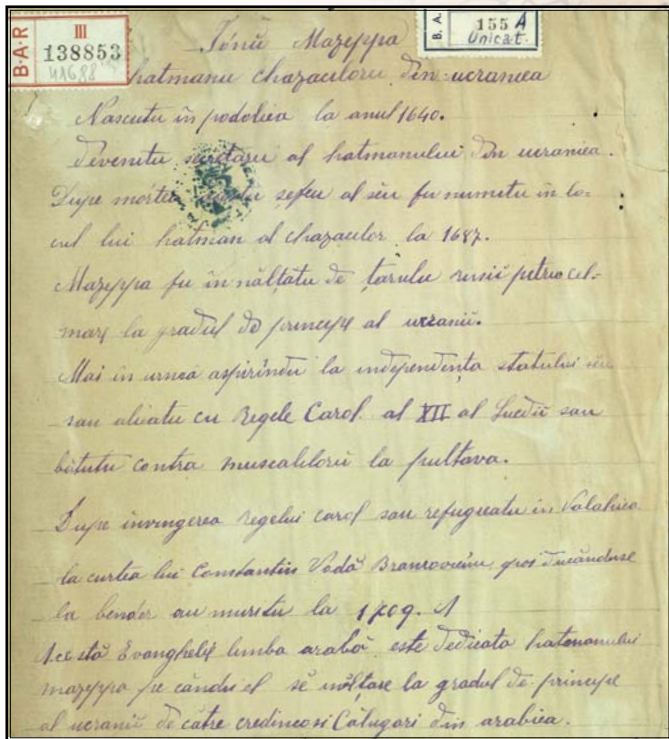 B·A·R
III
138853
41688
B. A.
155 A
Unicat.
Ionŭ Mazeppa
hatmanu chazacilorŭ din ucraniea
Nascutu in podoliea la anul 1640.
Devenitu secretarŭ al hatmanului din ucraniea.
Dupe mortea șefeu al sĕu fu numitu in lo=
cul lui hatman al chazacilor la 1687.
Mazeppa fu in nălțatu de țarulu rusii petru cel-
mare la gradul de principe al ucranii.
Mai in urmea aspirindu la independența statului sĕu
sau aliatu cu Regele Carol al XII al Suedii sau
bătutu contra muscalilorŭ la pultava.
Dupe invingerea regelui carol sau refugieatu in Valahiea
la curtea lui Constantin Vodă Brancoveanu, poi ducânduse
la bender au muritu la 1709.
Acestă Evanghelie limba arabă este dedicata hatmanului
mazeppa pe cându el sĕ inălțase la gradul de principe
al ucranii de către credincosi Călugari din arabiea.